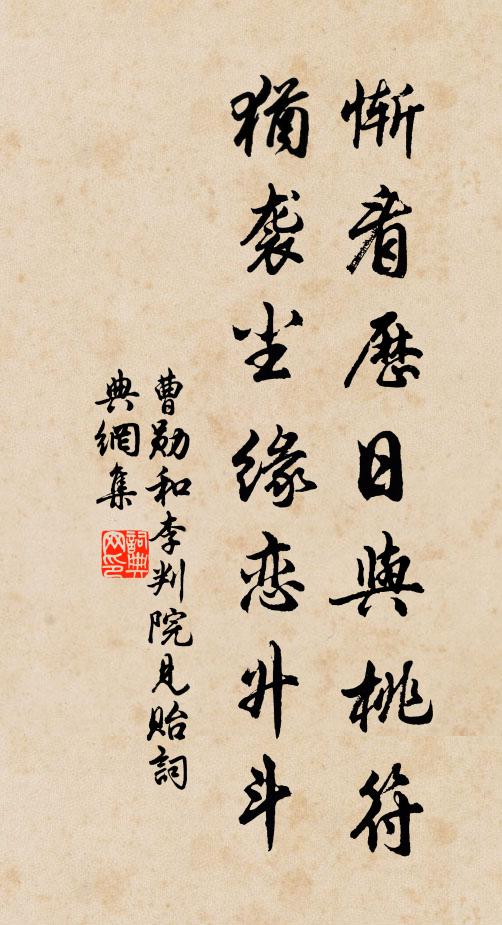 惭看歷日與桃符
猶袭尘缘恋升斗
曹勋和李判院見貽詞
典網集
詞典
网印